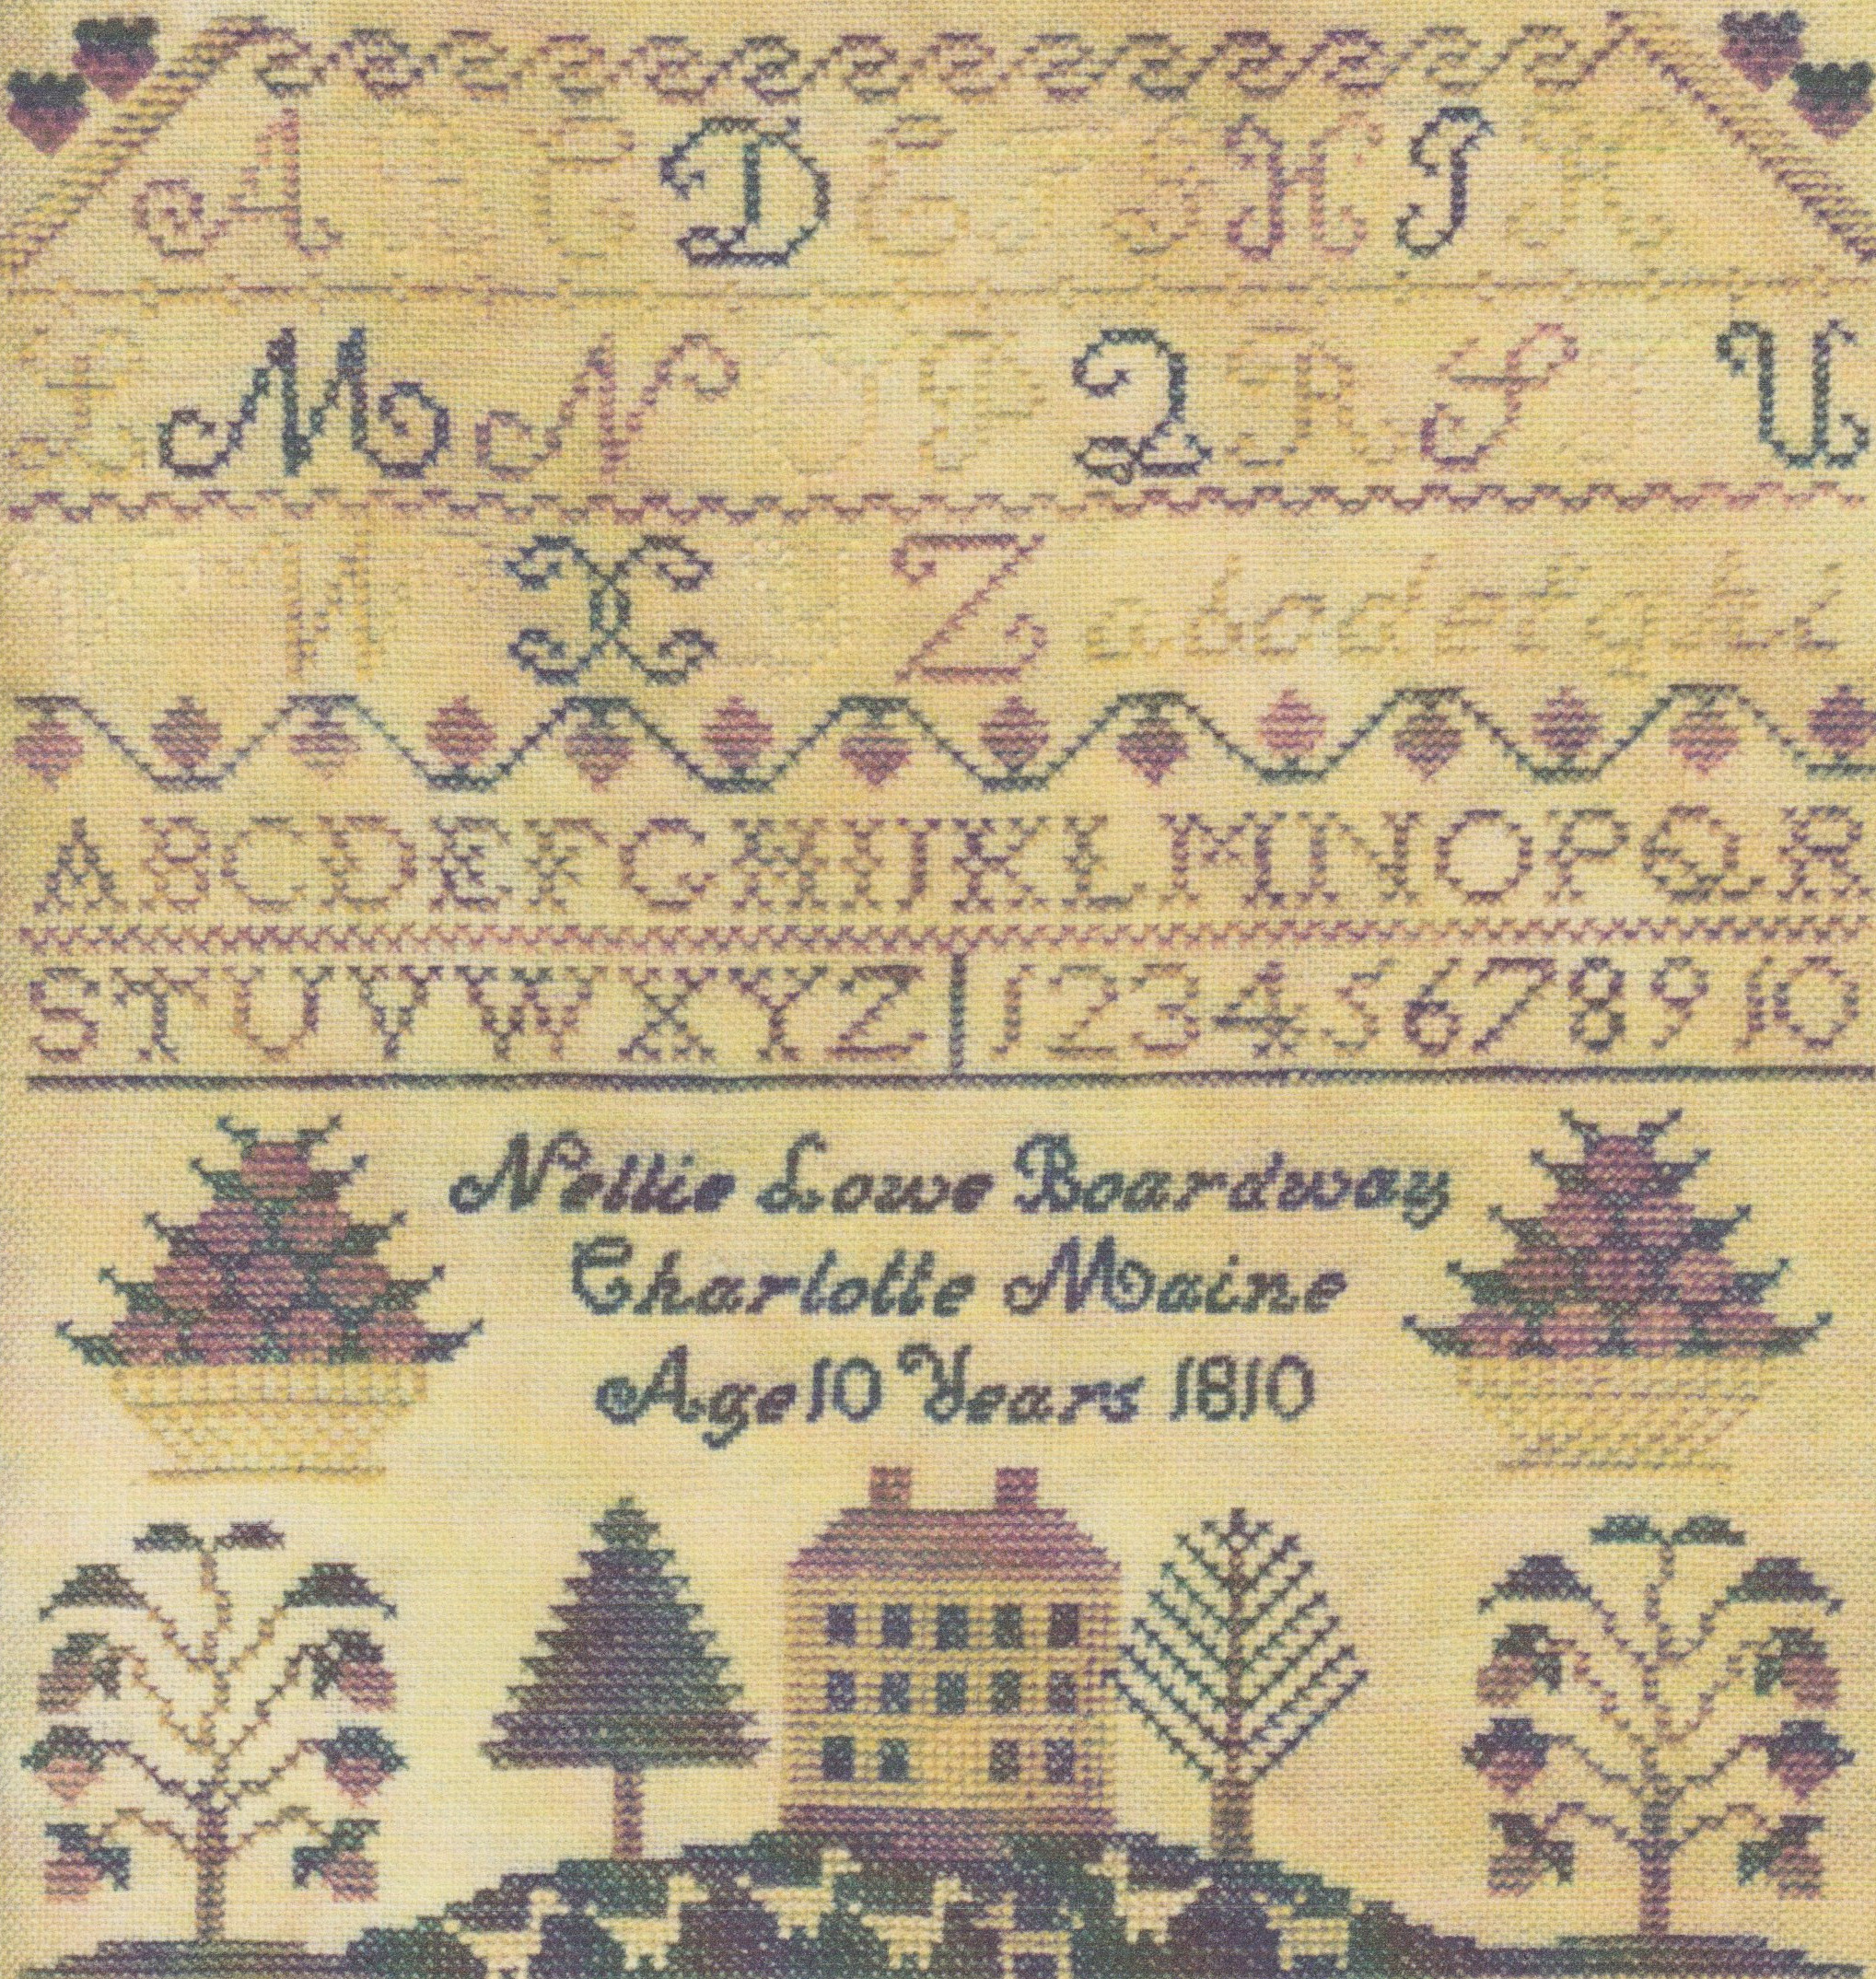 A C D E G H I K
L M N O P Q R S U
W X Z a b c d e f g h i
A B C D E F G H I J K L M N O P Q R
S T U V W X Y Z 1 2 3 4 5 6 7 8 9 10
Nellie Lowe Boardway
Charlotte Maine
Age 10 Years 1810